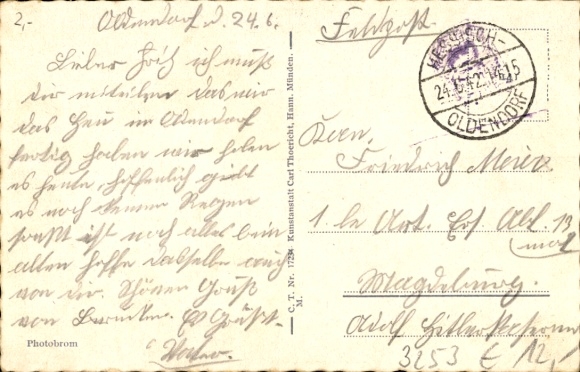 2,-
Oldendorf d. 24.6.
Lieber Fritz ich muß
Dir mitteilen das wir
das Heu im Oldendorf
fertig haben wir holen
es heute hoffentlich giebt
es noch keinen Regen
sonst ist noch alles beim
alten hoffe dasselbe auch
von dir. Schönen Gruß
von Es Grüßt
Vater.
Photobrom
C. T. Nr. Kunstanstalt Carl Thoericht, Hann. Münden.
M.
Feldpost
HESSISCH-
24.6.42
OLDENDORF
Friedrich Meier
1 le Art. Ers Abt. 13
mot
Magdeburg.
Adolf Hitlerkaserne
3253 E 12,